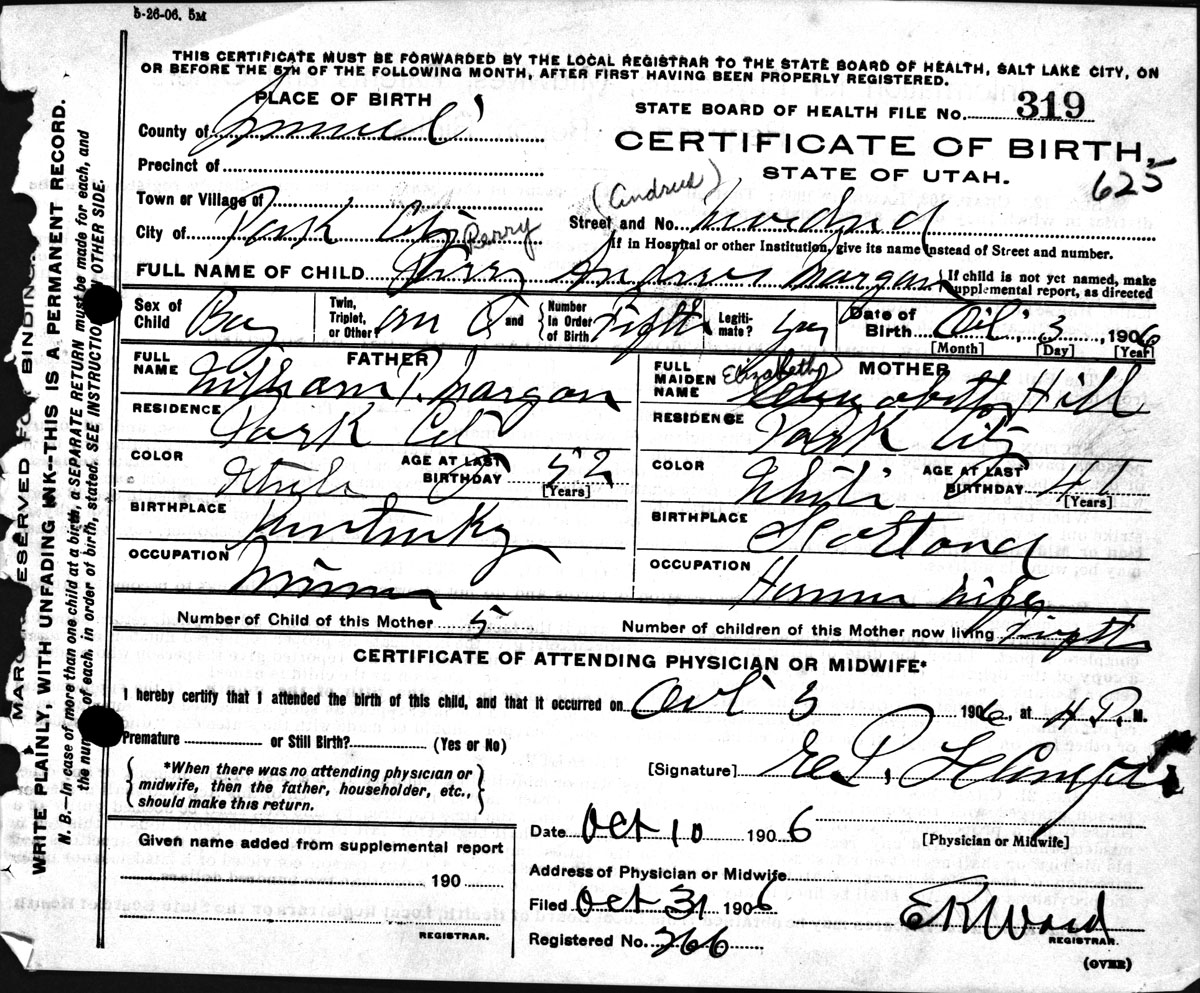 5-26-06. 5M
THIS CERTIFICATE MUST BE FORWARDED BY THE LOCAL REGISTRAR TO THE STATE BOARD OF HEALTH, SALT LAKE CITY, ON
OR BEFORE THE 5TH OF THE FOLLOWING MONTH, AFTER FIRST HAVING BEEN PROPERLY REGISTERED.
PLACE OF BIRTH
STATE BOARD OF HEALTH FILE No. 319
County of
CERTIFICATE OF BIRTH,
Precinct of
STATE OF UTAH.
625
Town or Village of
(Andrus)
City of Park City
Street and No.
Perry
If in Hospital or other Institution, give its name instead of Street and number.
FULL NAME OF CHILD Perry Andrus Morgan
If child is not yet named, make
supplemental report, as directed
Sex of Child Boy
Twin, Triplet, or Other? and
Number In Order of Birth Fifth
Legitimate? yes
Date of Birth 3, 1906
[Month] [Day] [Year]
FATHER
FULL NAME William P. Morgan
RESIDENCE Park City
COLOR White
AGE AT LAST BIRTHDAY 52
[Years]
BIRTHPLACE Kentucky
OCCUPATION Miner
MOTHER
Elizabeth
FULL MAIDEN NAME Hill
RESIDENCE Park City
COLOR White
AGE AT LAST BIRTHDAY 41
[Years]
BIRTHPLACE Scotland
OCCUPATION House wife
Number of Child of this Mother 5
Number of children of this Mother now living
CERTIFICATE OF ATTENDING PHYSICIAN OR MIDWIFE*
I hereby certify that I attended the birth of this child, and that it occurred on 3 1906, at P. M.
Premature or Still Birth? (Yes or No)
*When there was no attending physician or
midwife, then the father, householder, etc.,
should make this return.
[Signature]
[Physician or Midwife]
Date Oct 10 1906
Given name added from supplemental report
190
REGISTRAR.
Address of Physician or Midwife
Filed Oct 31 1906
E R Ward
REGISTRAR.
Registered No. 266
(OVER)
MARGIN RESERVED FOR BINDING.
WRITE PLAINLY, WITH UNFADING INK—THIS IS A PERMANENT RECORD.
N. B.—In case of more than one child at a birth, a SEPARATE RETURN must be made for each, and
the number of each, in order of birth, stated. SEE INSTRUCTIONS ON OTHER SIDE.